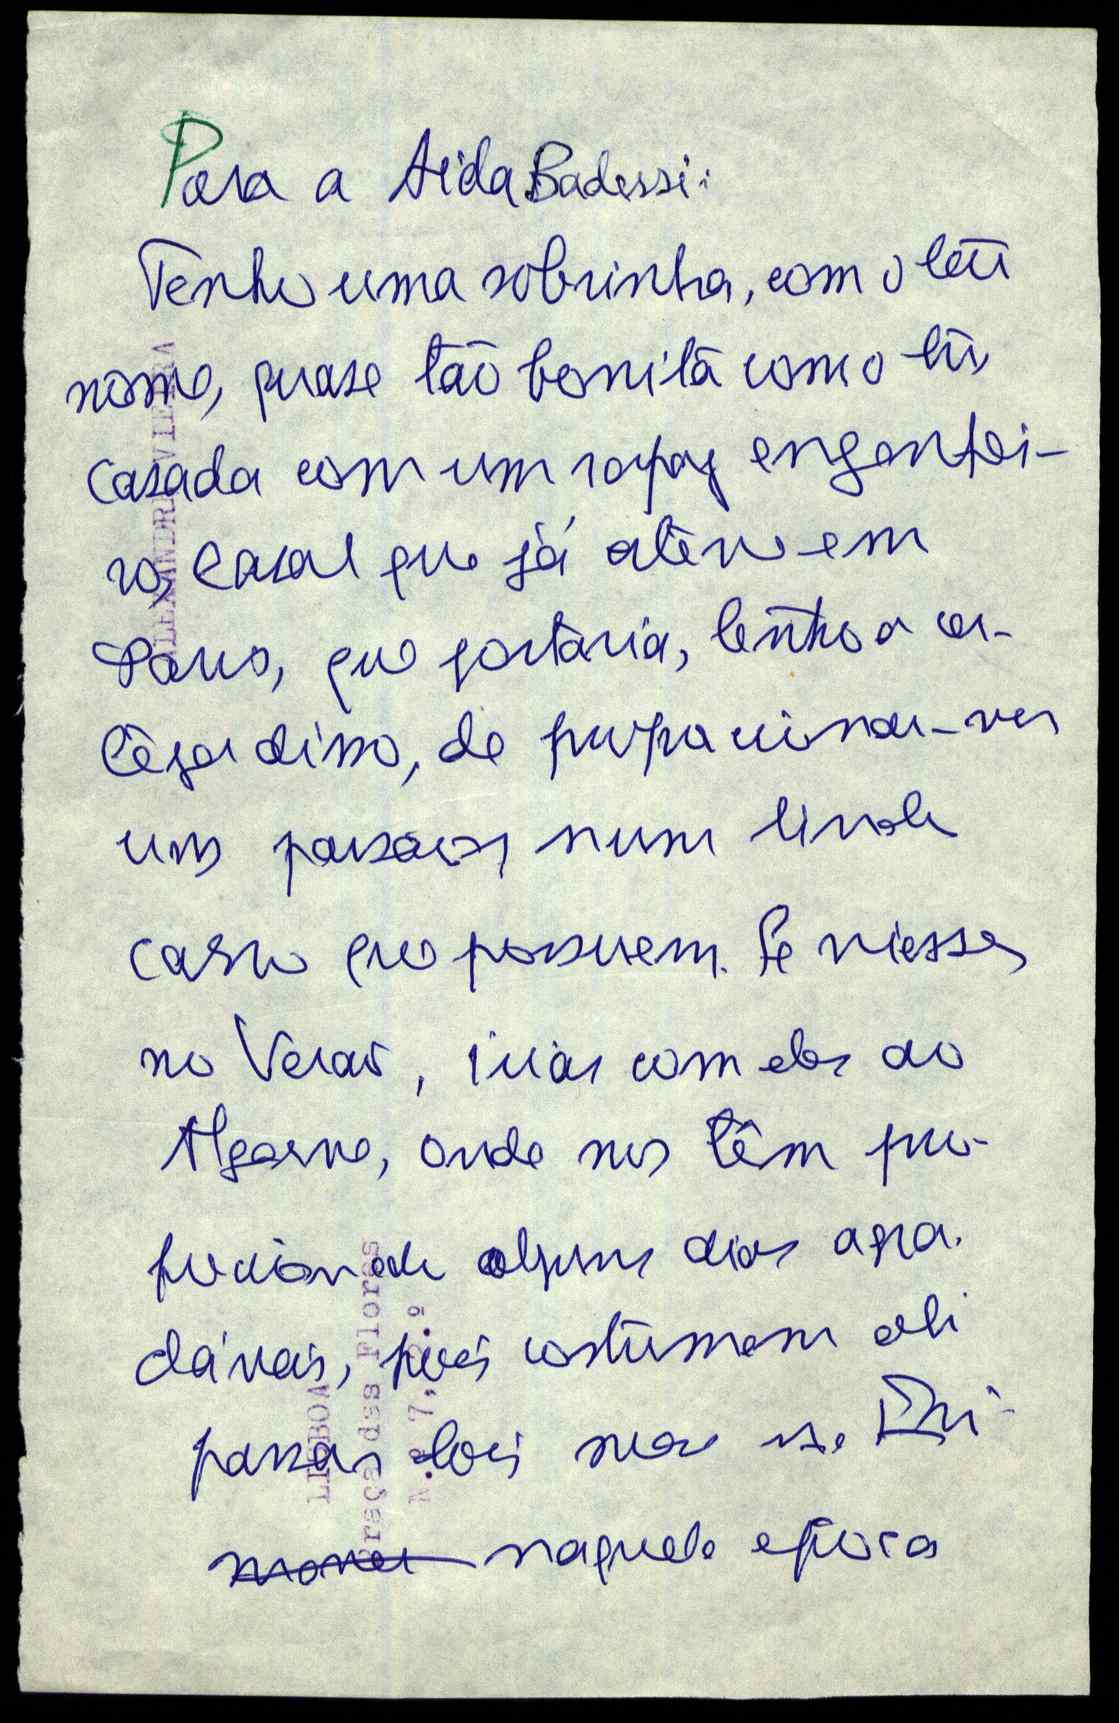 Para a Aida Badessi:
Tenho uma sobrinha, com o teu
nome, quase tão bonita como tu,
casada com um rapaz engenhei-
ro, casal que já esteve em
que gostaria, tenho a cer-
teza disso, de proporcionar-vos
uns passeios num lindo
carro que possuem. Se viesses
no Verão, irias com eles ao
Algarve, onde nos têm pro-
porcionado alguns dias agra-
dáveis, pois costumam ali
passar dois
naquela época
ALEXANDRE VIEIRA
LISBOA
Praça das Flores
N.º 7,